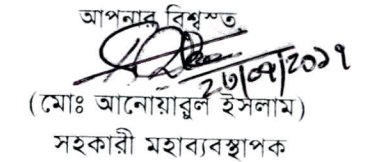 আপনার বিশ্বস্ত
(মোঃ আনোয়ারুল ইসলাম)
সহকারী মহাব্যবস্থাপক